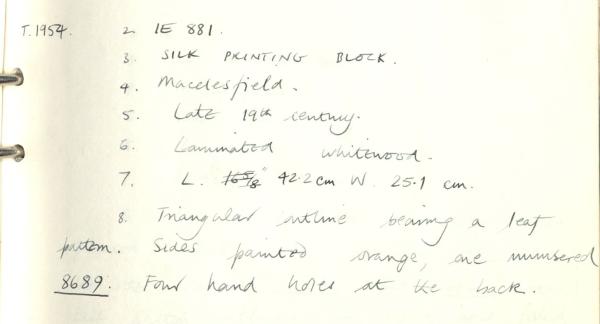 T.1954. 2. IE 881.
3. SILK PRINTING BLOCK.
4. Macclesfield.
5. Late 19th century.
6. Laminated whitewood.
7. L. 16 5/8" 42.2 cm W. 25.1 cm.
8. Triangular outline bearing a leaf
pattern. Sides painted orange, one numbered
8689. Four hand holes at the back.